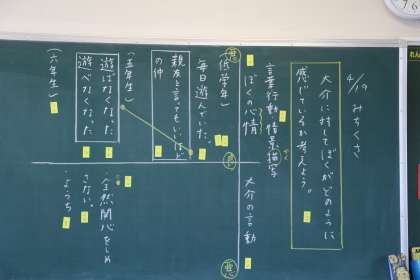 4/19 みちくさ
大介に対してぼくがどのように
感じているか考えよう。
言葉 行動 情景描写
ぼくの心情
大介の言動
（低学年）
毎日遊んでいた。
親友と言ってもいいほど
の仲
（五年生）
遊ばなくなった
遊べなくなった
・全然関心をしめ
さない。
（六年生）